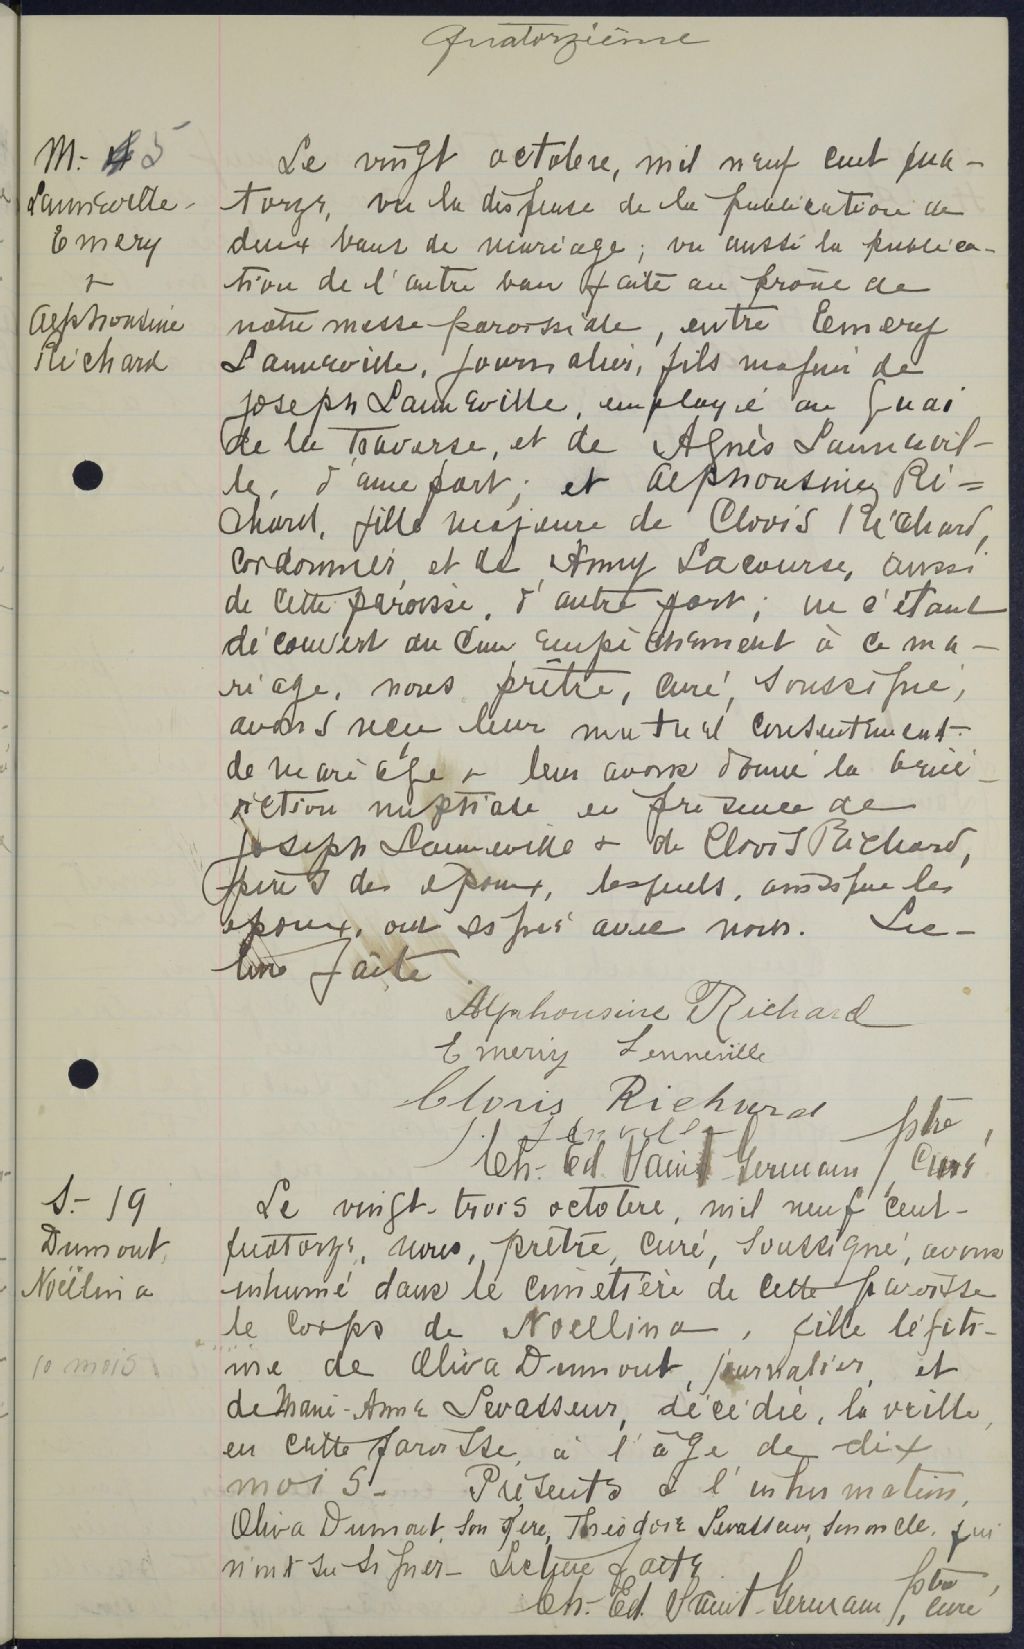 Quatorzième
M.- 45
Lanneville
Emery
+
Alphonsine
Richard
Le vingt octobre, mil neuf cent qua-
torze, vu la dispense de la publication de
deux bans de mariage; vu aussi la publica-
tion de l'autre ban faite au prône de
notre messe paroissiale, entre Emery
Lanneville, journalier, fils majeur de
Joseph Lanneville, employé au Quai
de la Traverse, et de Agnès Lannevil-
le, d'une part; et Alphonsine Ri=
chard, fille majeure de Clovis Richard,
cordonnier, et de Anny Lacourse, aussi
de cette paroisse, d'autre part; ne s'étant
découvert aucun empêchement à ce ma-
riage, nous prêtre, curé, soussigné,
avons reçu leur mutuel consentement
de mariage + leur avons donné la béné-
diction nuptiale en présence de
Joseph Lanneville + de Clovis Richard,
pères des époux, lesquels, ainsi que les
époux, ont signé avec nous. Lec-
ture faite.
Alphonsine Richard
Emeriy Lenneville
Clovis Richard
Ch.-Ed. Saint-Germain, ptre, curé
S.- 19
Dumont,
Noëllina
10 mois
Le vingt-trois octobre, mil neuf cent-
quatorze, nous, prêtre, curé, soussigné, avons
inhumé dans le cimetière de cette paroisse
le corps de Noellina, fille légiti-
me de Oliva Dumont, journalier, et
de Marie-Anna Levasseur, décédée, la veille,
en cette paroisse, à l'âge de dix
mois. Présents à l'inhumation,
Oliva Dumont, son père, Théodore Levasseur, son oncle, qui
n'ont su signer- Lecture faite
Ch.-Ed. Saint-Germain, ptre, curé